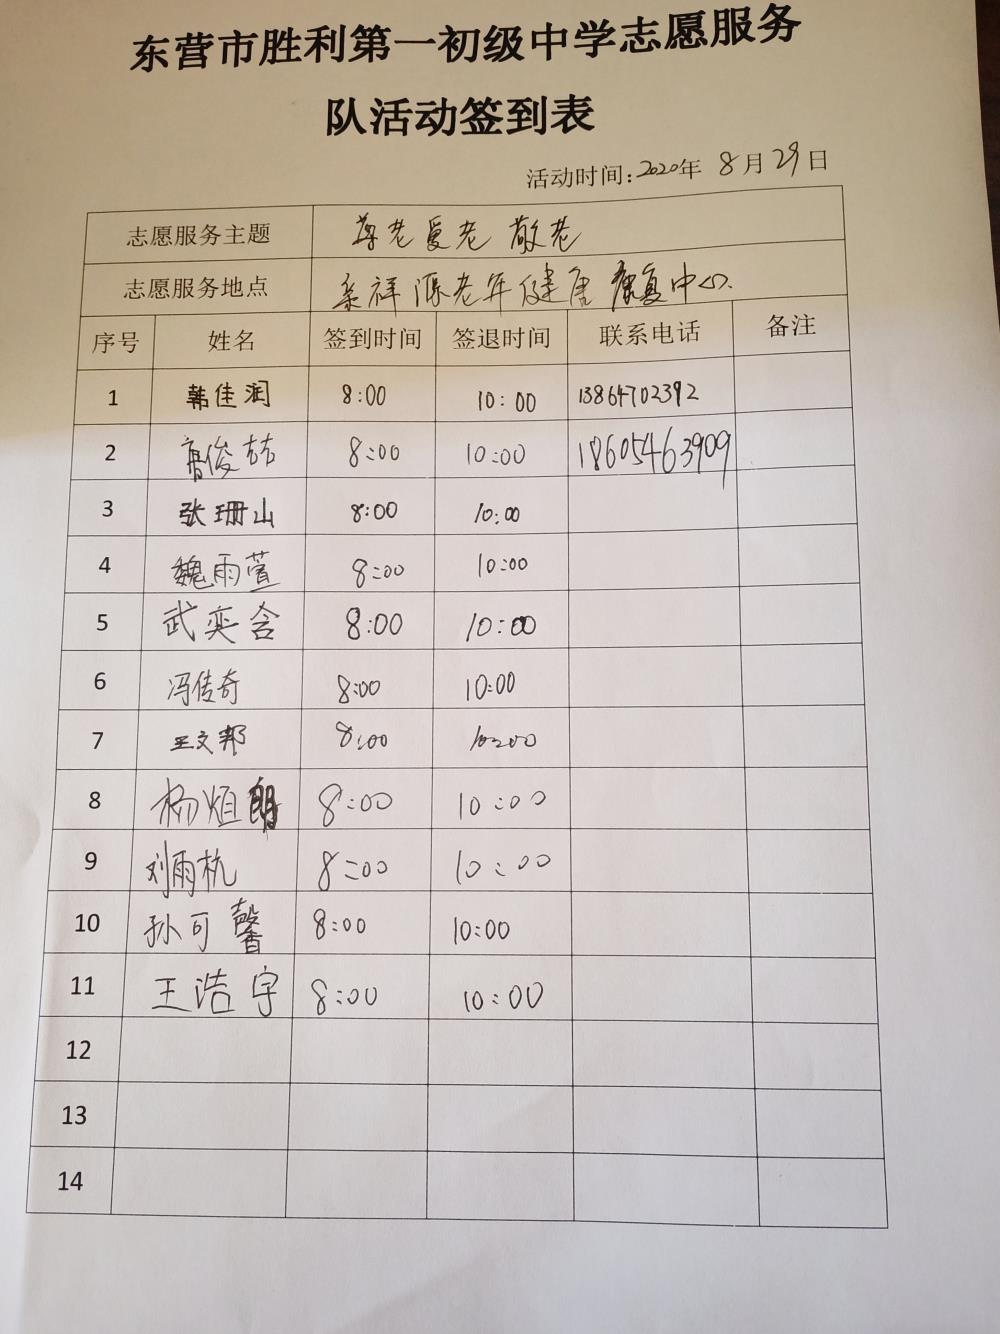 东营市胜利第一初级中学志愿服务
队活动签到表
活动时间:2020年 8月29日
志愿服务主题 尊老爱老 敬老
志愿服务地点 祥 老年健康 康复中心
序号 姓名 签到时间 签退时间 联系电话 备注
1 韩佳润 8:00 10:00 13864702392
2 高俊喆 8:00 10:00 18605463909
3 张珊山 8:00 10:00
4 魏雨萱 8:00 10:00
5 武奕含 8:00 10:00
6 冯传奇 8:00 10:00
7 王文邦 8:00 10:00
8 杨烜朗 8:00 10:00
9 刘雨杭 8:00 10:00
10 孙可馨 8:00 10:00
11 王浩宇 8:00 10:00
12
13
14